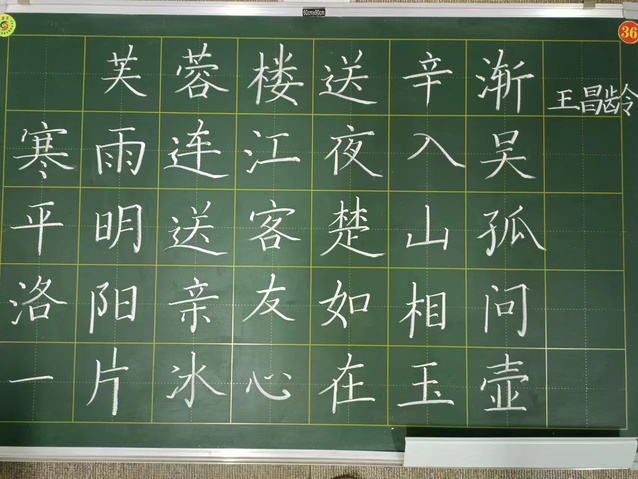 60cmx90cm
36
芙蓉楼送辛渐 王昌龄
寒雨连江夜入吴
平明送客楚山孤
洛阳亲友如相问
一片冰心在玉壶